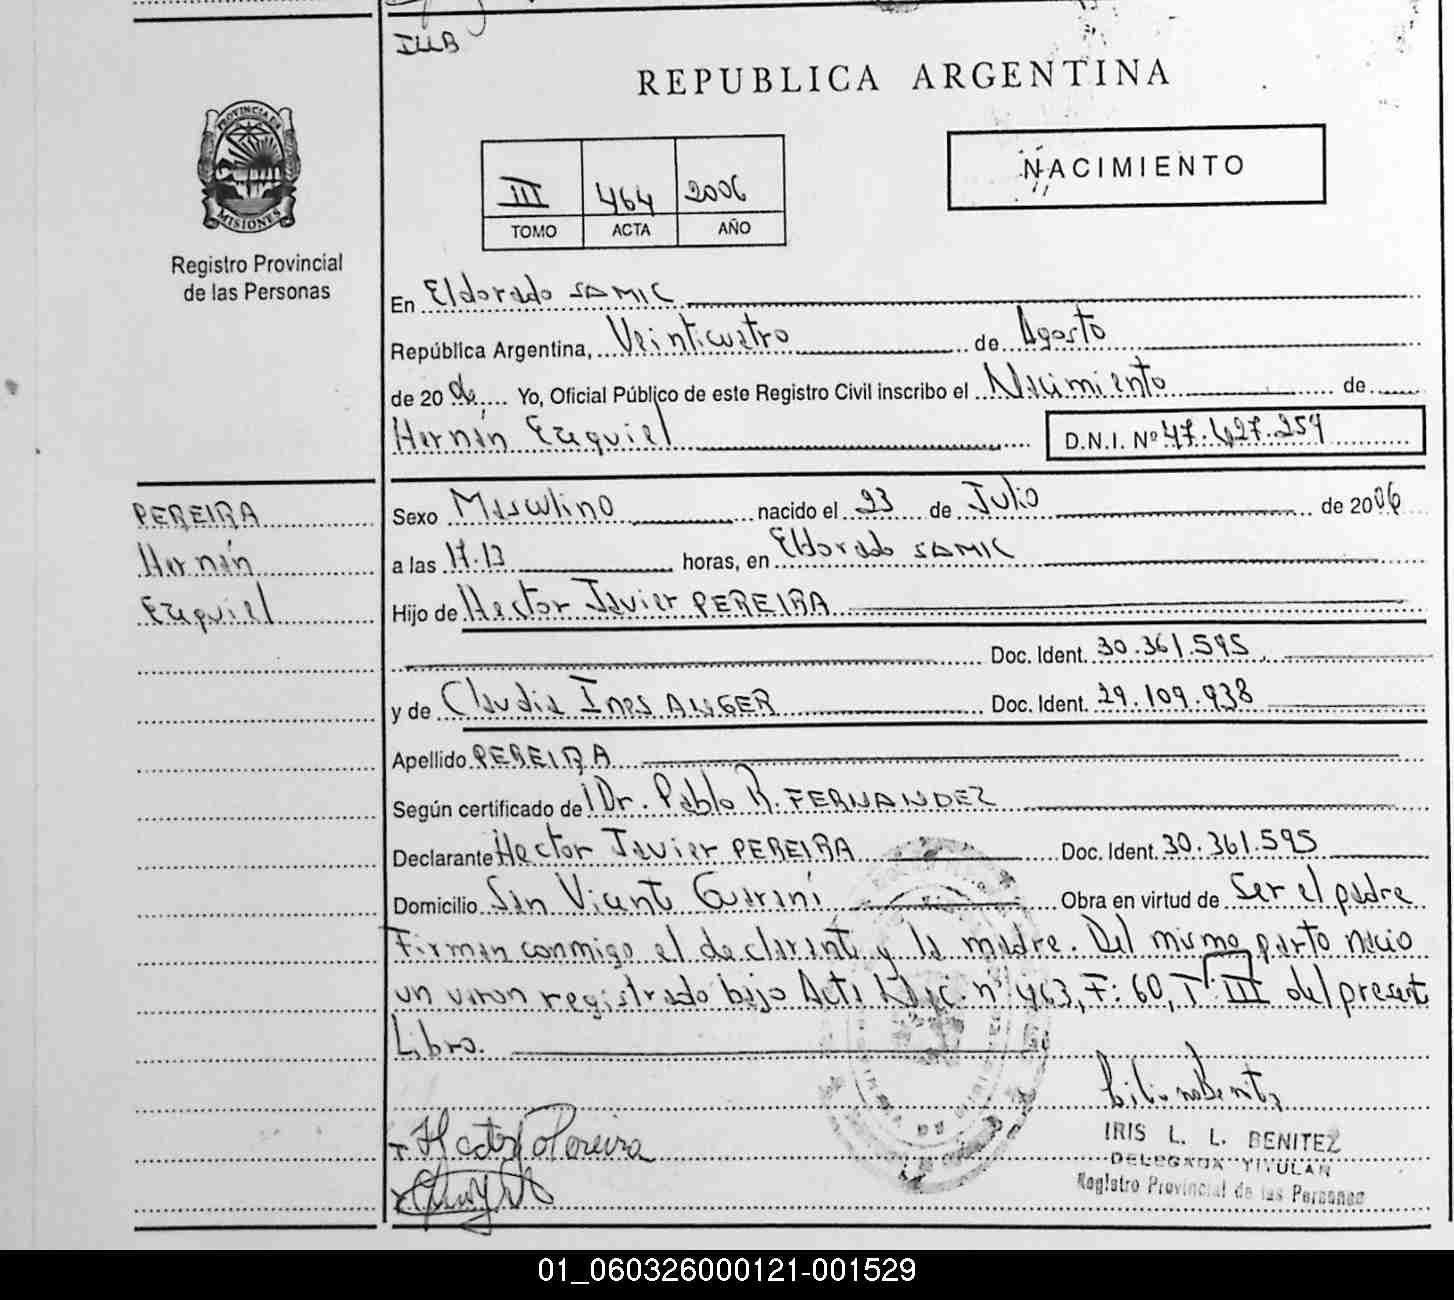 ILLB
REPUBLICA ARGENTINA
PROVINCIA DE
MISIONES
Registro Provincial
de las Personas
III 464 2006
TOMO ACTA AÑO
NACIMIENTO
En Eldorado SAMIC
República Argentina, Veinticuatro de Agosto
de 20 06 Yo, Oficial Público de este Registro Civil inscribo el Nacimiento de
Hernán Ezequiel D.N.I. Nº 47.427.259
PEREIRA
Hernán
Ezequiel
Sexo Masculino nacido el 23 de Julio de 2006
a las 17.13 horas, en Eldorado SAMIC
Hijo de Hector Javier PEREIRA
Doc. Ident. 30.361.595
y de Claudia Ines AUGER Doc. Ident. 29.109.938
Apellido PEREIRA
Según certificado de Dr. Pablo R. FERNANDEZ
Declarante Hector Javier PEREIRA Doc. Ident. 30.361.595
Domicilio San Vicente Guaraní Obra en virtud de Ser el padre
Firman conmigo el declarante y la madre. Del mismo parto nacio
un varon registrado bajo Acta Nac. nº 463, F: 60, Tº III del presente
Libro.
Hector J Pereira
IRIS L. L. BENITEZ
DELEGADA TITULAR
Registro Provincial de las Personas
01_060326000121-001529